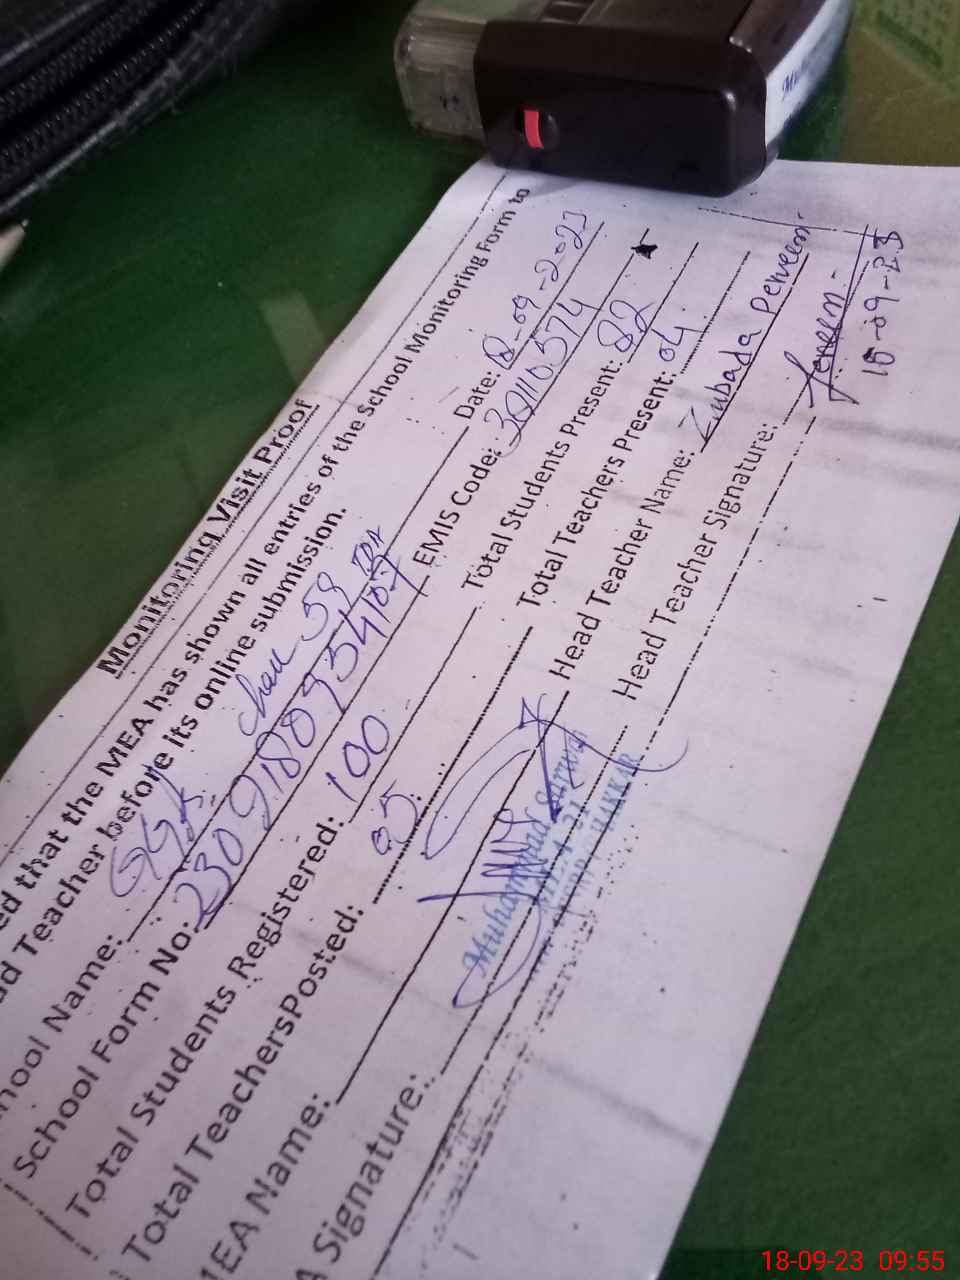 Monitoring Visit Proof
ed that the MEA has shown all entries of the School Monitoring Form to
ad Teacher before its online submission.
hool Name: GGPS Chak 58 Date: 18-09-2023
School Form No: EMIS Code: 30110574
Total Students Registered: 100 Total Students Present: 82
Total TeachersPosted: 05 Total Teachers Present: 04
MEA Name: Head Teacher Name: Zubada Perveen
A Signature: Head Teacher Signature:
18-09-23
Muhammad Sarwar
18-09-23 09:55